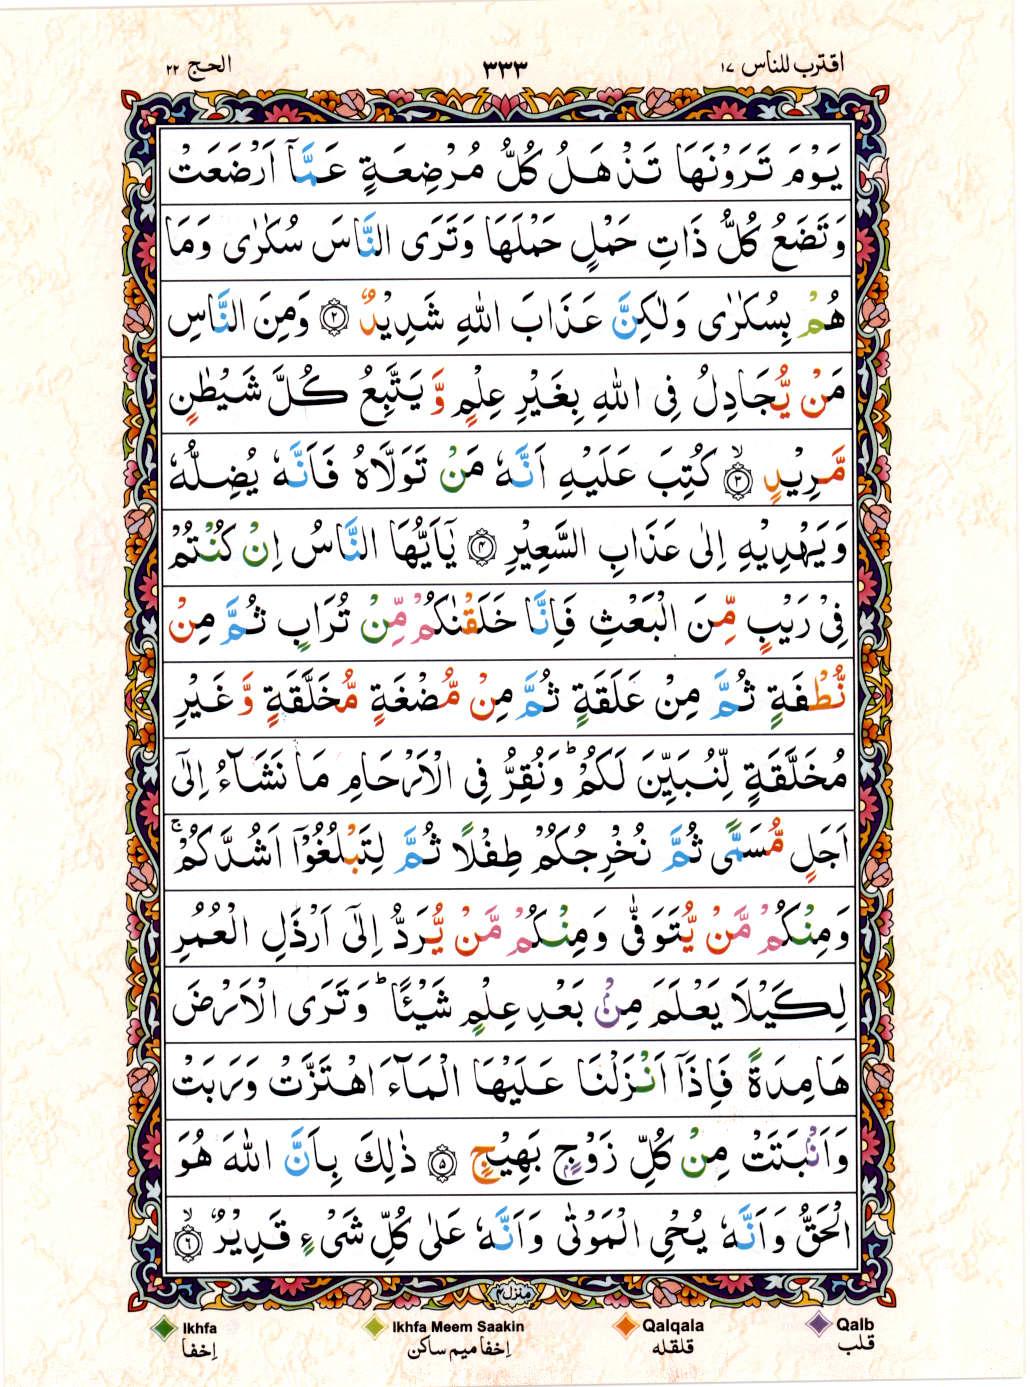 اقترب للناس ١٧
٣٣٣
الحج ٢٢
يَوْمَ تَرَوْنَهَا تَذْهَلُ كُلُّ مُرْضِعَةٍ عَمَّآ اَرْضَعَتْ
وَتَضَعُ كُلُّ ذَاتِ حَمْلٍ حَمْلَهَا وَتَرَى النَّاسَ سُكٰرٰى وَمَا
هُمْ بِسُكٰرٰى وَلٰكِنَّ عَذَابَ اللّٰهِ شَدِيْدٌ ۝٢ وَمِنَ النَّاسِ
مَنْ يُّجَادِلُ فِى اللّٰهِ بِغَيْرِ عِلْمٍ وَّيَتَّبِعُ كُلَّ شَيْطٰنٍ
مَّرِيْدٍ ۙ۝٣ كُتِبَ عَلَيْهِ اَنَّهٗ مَنْ تَوَلَّاهُ فَاَنَّهٗ يُضِلُّهٗ
وَيَهْدِيْهِ اِلٰى عَذَابِ السَّعِيْرِ ۝٤ يٰٓاَيُّهَا النَّاسُ اِنْ كُنْتُمْ
فِىْ رَيْبٍ مِّنَ الْبَعْثِ فَاِنَّا خَلَقْنٰكُمْ مِّنْ تُرَابٍ ثُمَّ مِنْ
نُّطْفَةٍ ثُمَّ مِنْ عَلَقَةٍ ثُمَّ مِنْ مُّضْغَةٍ مُّخَلَّقَةٍ وَّغَيْرِ
مُخَلَّقَةٍ لِّنُبَيِّنَ لَكُمْ ؕ وَنُقِرُّ فِى الْاَرْحَامِ مَا نَشَآءُ اِلٰٓى
اَجَلٍ مُّسَمًّى ثُمَّ نُخْرِجُكُمْ طِفْلًا ثُمَّ لِتَبْلُغُوْٓا اَشُدَّكُمْ ۚ
وَمِنْكُمْ مَّنْ يُّتَوَفّٰى وَمِنْكُمْ مَّنْ يُّرَدُّ اِلٰٓى اَرْذَلِ الْعُمُرِ
لِكَيْلَا يَعْلَمَ مِنْۢ بَعْدِ عِلْمٍ شَيْـًٔا ؕ وَتَرَى الْاَرْضَ
هَامِدَةً فَاِذَآ اَنْزَلْنَا عَلَيْهَا الْمَآءَ اهْتَزَّتْ وَرَبَتْ
وَاَنْۢبَتَتْ مِنْ كُلِّ زَوْجٍۢ بَهِيْجٍ ۝٥ ذٰلِكَ بِاَنَّ اللّٰهَ هُوَ
الْحَقُّ وَاَنَّهٗ يُحْىِ الْمَوْتٰى وَاَنَّهٗ عَلٰى كُلِّ شَىْءٍ قَدِيْرٌ ۙ۝٦
منزل ٤
Ikhfa
Ikhfa Meem Saakin
Qalqala
Qalb
اِخفا
اِخفا میم ساکن
قلقله
قلب